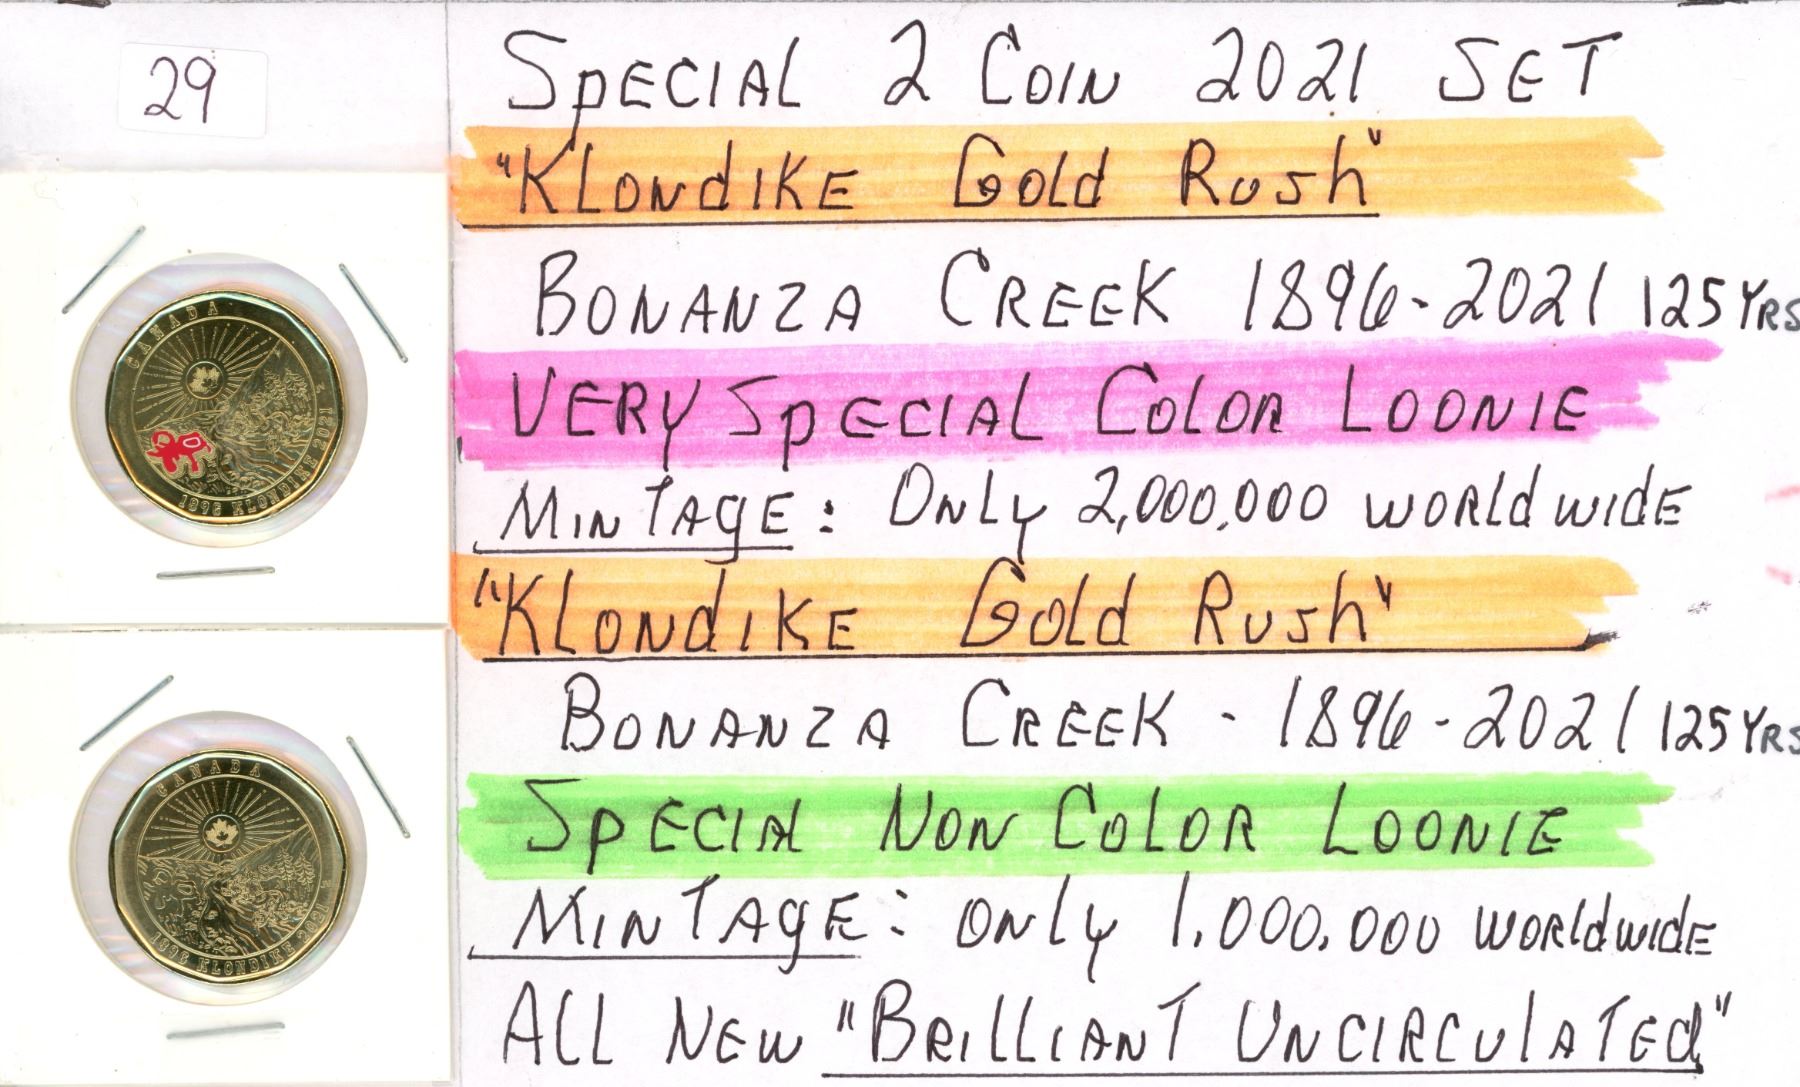 29
SpECIAL 2 COIN 2021 SET
"KLONdIKE GOLd RUSh"
BONANZA CREEK 1896-2021 125 YRS
VERY SpECIAL COLOR LOONIE
MINTAgE: ONLy 2,000,000 WORLdWIdE
"KLONdIKE GOLd RUSh"
BONANZA CREEK - 1896-2021 125 YRS
SpECIAL NON COLOR LOONIE
MINTAgE: ONLy 1,000,000 WORLdWIdE
ALL NEW "BRILLIANT UNCIRCULATEd"
CANADA
1896 KLONDIKE 2021
CANADA
1896 KLONDIKE 2021